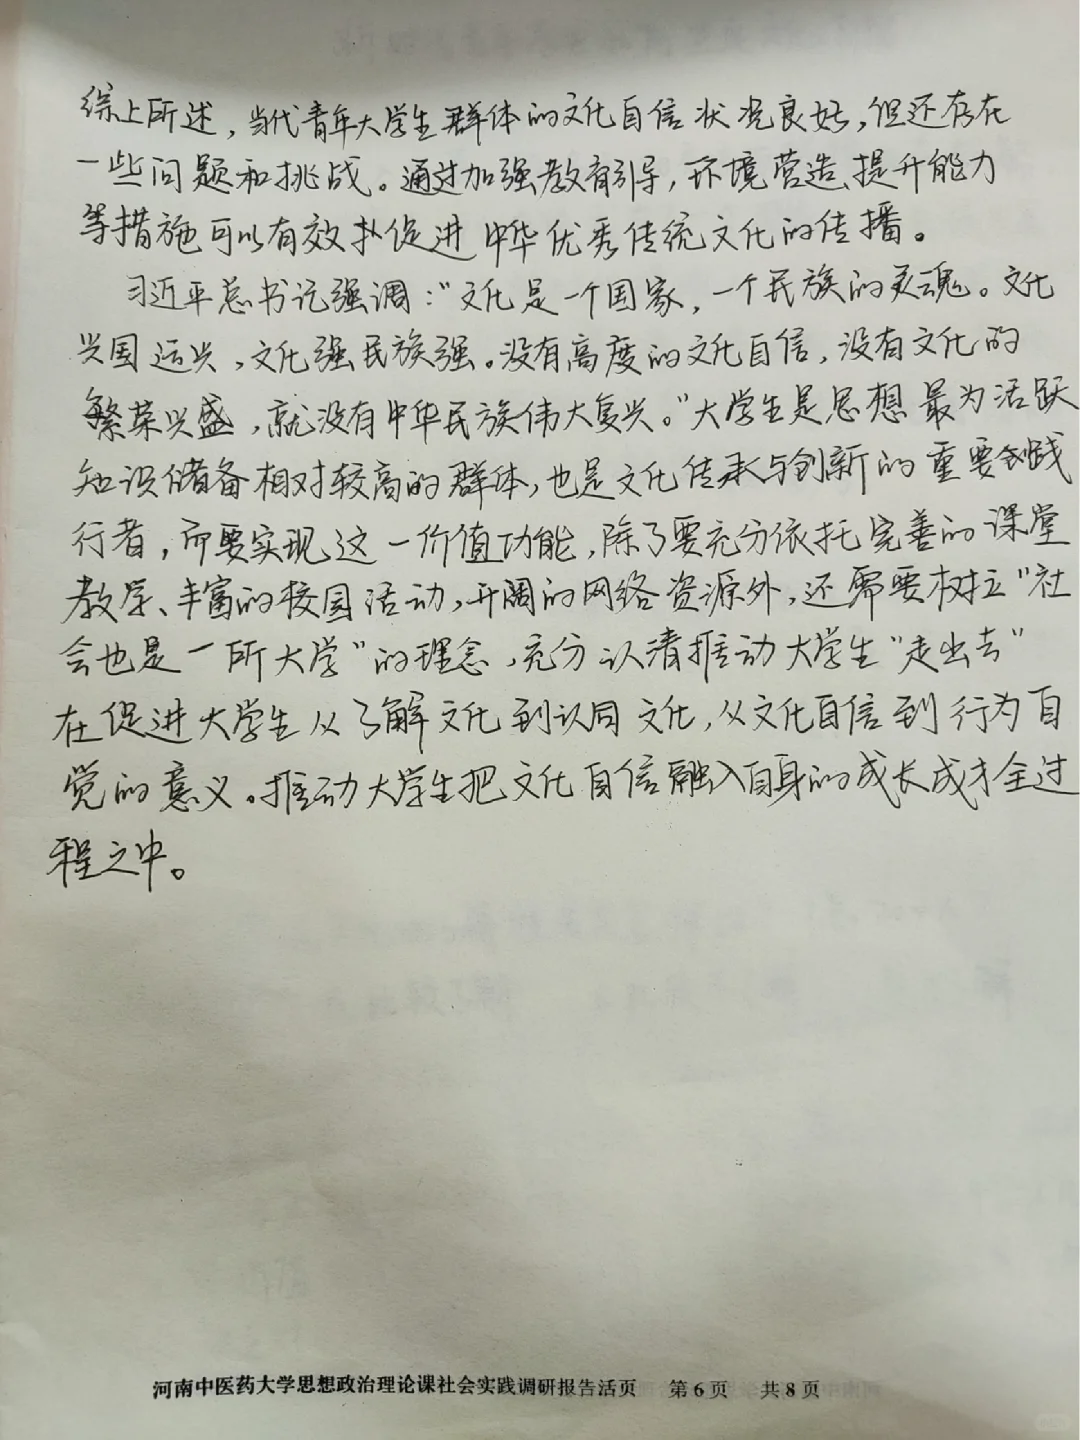 综上所述，当代青年大学生群体的文化自信状况良好，但还存在
一些问题和挑战。通过加强教育引导，环境营造、提升能力
等措施可以有效扑促进中华优秀传统文化的传播。
习近平总书记强调：“文化是一个国家，一个民族的灵魂。文化
兴国运兴，文化强民族强。没有高度的文化自信，没有文化的
繁荣兴盛，就没有中华民族伟大复兴。”大学生是思想最为活跃
知识储备相对较高的群体，也是文化传承与创新的重要践
行者，而要实现这一价值功能，除了要充分依托完善的课堂
教学、丰富的校园活动，开阔的网络资源外，还需要树立“社
会也是一所大学”的理念，充分认清推动大学生“走出去”
在促进大学生从了解文化到认同文化，从文化自信到行为自
觉的意义。推动大学生把文化自信融入自身的成长成才全过
程之中。
河南中医药大学思想政治理论课社会实践调研报告活页 第6页 共8页